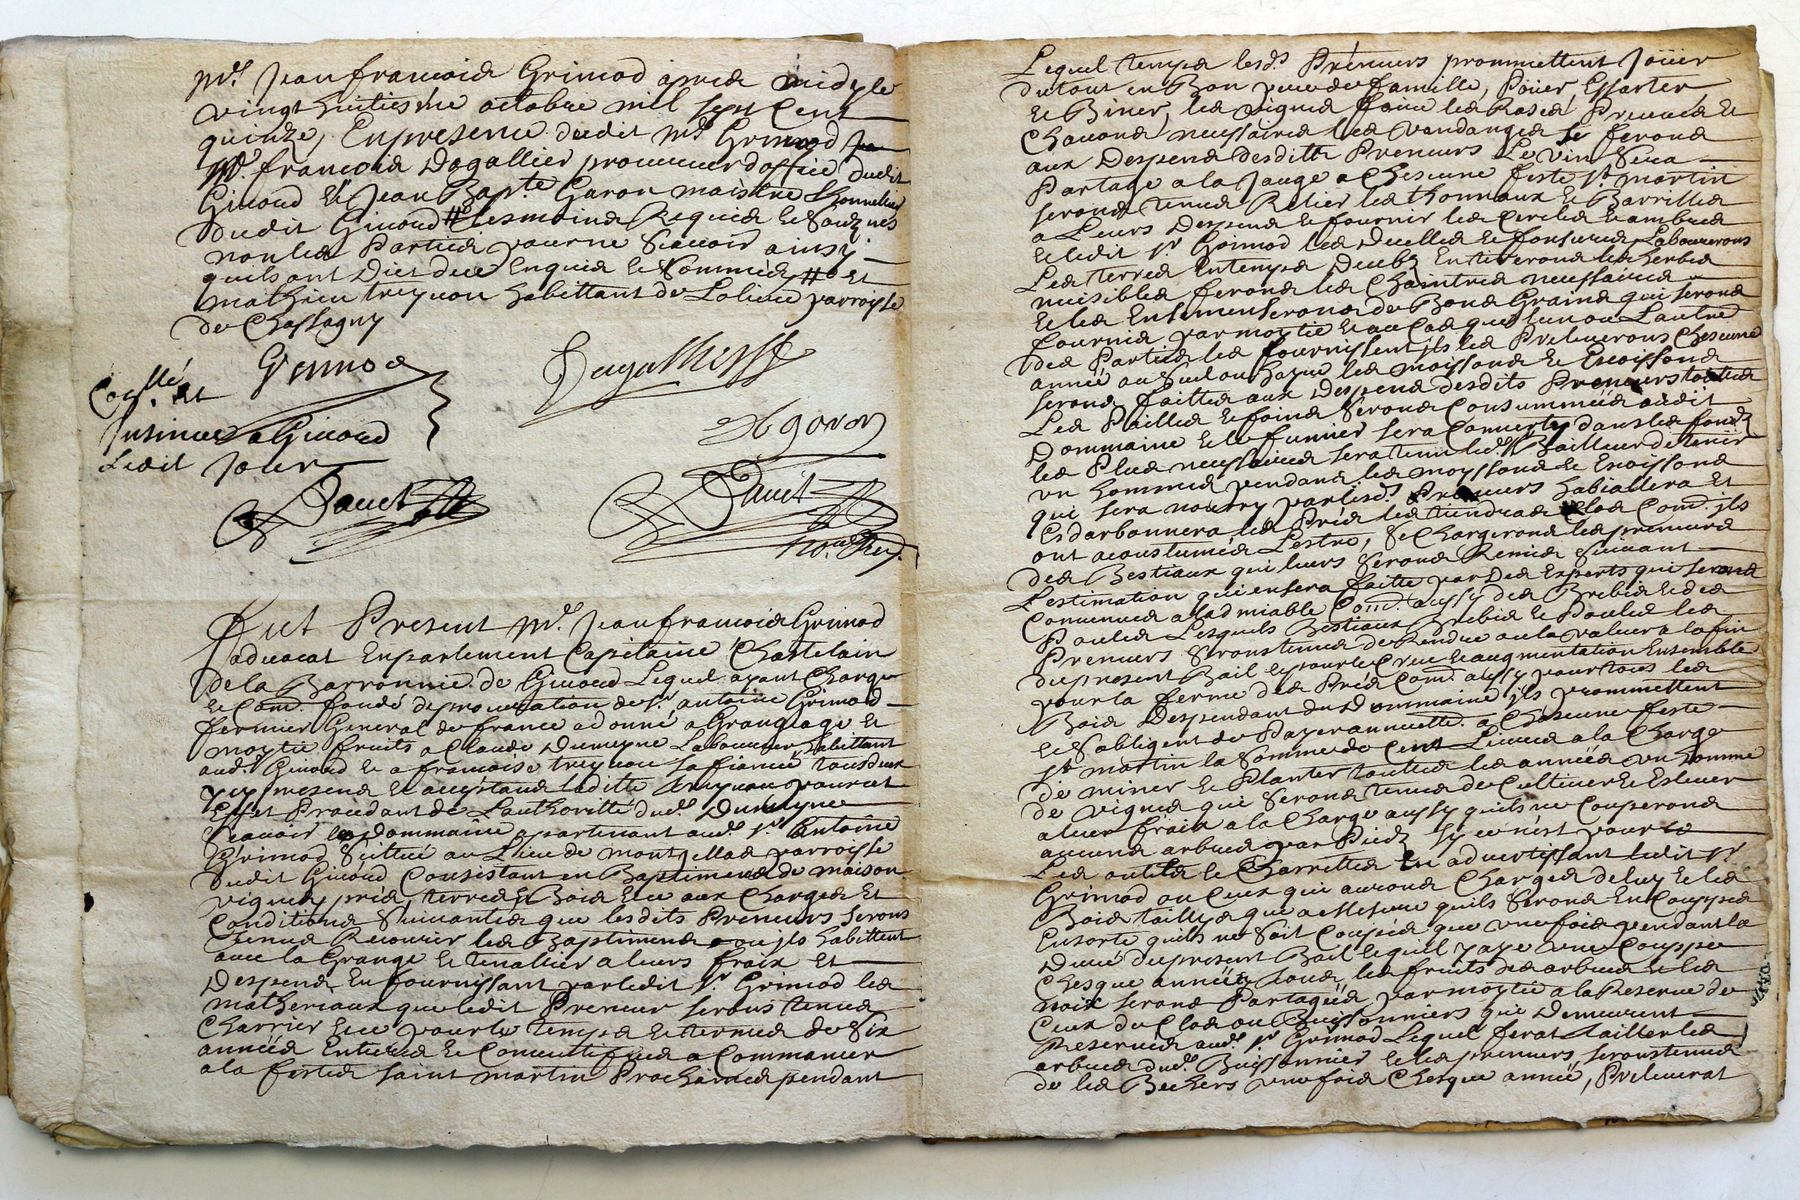 Mr. Jean francois Grimod apres midy le
vingt huitiesme octobre mil sept Cent
quinze, En presence dudit Mr. Grimod
Mr. francois Dagallier procureur d'office dudit
Givord Et Jean Bapte. Garon maistre thonnellier
dudit Givord # tesmoins Requis Et soubznes
non les Parties pour ne scavoir ainsy
quils ont Dict de ce Enquis Et Sommés # Et
Mathieu treynon habittant de parroisse
de Chassagny
Grimod
Dagallier
JB garon
Conllé. Et
Insinué a Givord
Ledit Jour
Dauit
Dauit
nore. Roy.
fut Present Mr. Jean francois Grimod
advocat En parlement Capitaine Chastelain
de la Barronnie de Givord Lequel ayant Charge
Et Com. fondé de procuration de sr. antoine Grimod
fermier General de france a donné a Grangeage Et
moytié fruits a Claude Dumeyne Laboureur habittant
aud. Givord Et a francoise treynon sa fiancé tous deux
icy presens Et acceptans laditte treynon pour cet
Effet Procedant de L'authoritté dud. Dumeyne
Scavoir le dommaine apartenant aud. sr. Antoine
Grimod scittué au Lieu de montgellas parroisse
dudit Givord Consistant en Baptiments de maison
vignes, prés, terres, Bois Et ce aux Charges Et
Conditions Suivantes que lesdits Preneurs serons
tenus Recouvrir les Baptiments ou ils habittent
avec la Grange Et tinallier a leurs fraix Et
Despens En fournissant par ledit sr. Grimod les
matheriaux que ledit Preneur serons tenus
Charrier Et ce pour le temps Et termes de Six
années Entieres Et Consecutifves a Commancer
a la festes saint martin Prochaines pendant
Lequel temps lesds. Preneurs prommettent Joüir
du tout en Bon pere de famille, Poüer Essarter
Et Biner, les vignes faire les Rases Preuves Et
Chavons necessaires les vandanges Se ferons
aux Despens desditts Preneurs Le vin Sera
Partagé a la Jauge a Chescune feste st. martin
serons tenus Relier les thonnaux Et Barrilles
a Leurs Despens Et fournir les Cercles Et ambres
Et ledit sr. Grimod les Duelles Et fonsures, Laboureront
Les terres En temps deub, En tireront les herbes
nuisibles ferons les Chaintres necessaires
Et les Ensemenserons de Bons Grains qui serons
fournis par moytié Et au Cas que lun ou l'autre
des Parties les fournissent ils les Preleverons Chescune
année au Suel ou les moissons Et Enoissons
serons faittes aux Despens desdits Preneurs touttes
Les Pailles Et foins serons Consummées audit
Dommaine Et le fumier sera Converty dans les fonds
les Plus necessaires sera tenu led. Bailleur de tenir
un hommes pendans les moyssons Et Enoissons
qui sera nourry par lesds. Preneurs habiallera Et
Esdarbonnera les Prés les tiendras Clos Com. ils
ont acoustumés L'estre, se Chargerons les preneurs
des Bestiaux qui leurs serons Remis suivant
L'estimation qui en sera faitte par Des Experts qui serons
Convenus a ladmiable Com. aussy des Brebis Et des
Poules Lesquels Bestiaux Brebis Et Poules les
Preneurs serons tenus de Rendre ou la valeur a la fin
du present Bail Et pour le Crue Et augmentation Ensemble
pour la ferme des Prés Com. aussy pour tous les
Bois Despendant du Dommaine ils prommettent
Et s'obligent de Payer annuellt. a Chescune feste
st. martin la Somme de Cent Livres a la Charge
de miner Et Planter touttes les années un homme
de vignes qui serons tenus de Cultiver Et Eslever
a leur fraix a la Charge aussy quils ne Couperons
aucuns arbres par Pieds sy ce n'est pour
Les outils Et Charrettes En advertissant ledit sr.
Grimod ou Ceux qui aurons Charges de luy Et les
Bois taillys que a Mesure quils serons En Couppes
Ensorte quils ne Soit Coupés que une fois pendant la
Durée du present Bail lequel paye une Couppe
Chesque années, tous les fruits des arbres Et les
noix serons Partagées par moytié a la Reserve de
Ceux du Clos ou Buissonniers qui Demeurent
Reservés aud. sr. Grimod Lequel ferat tailler les
arbres dud. Buissonnier Et les preneurs serons tenus
de les Bechers une fois Chesque année, Prelevrat